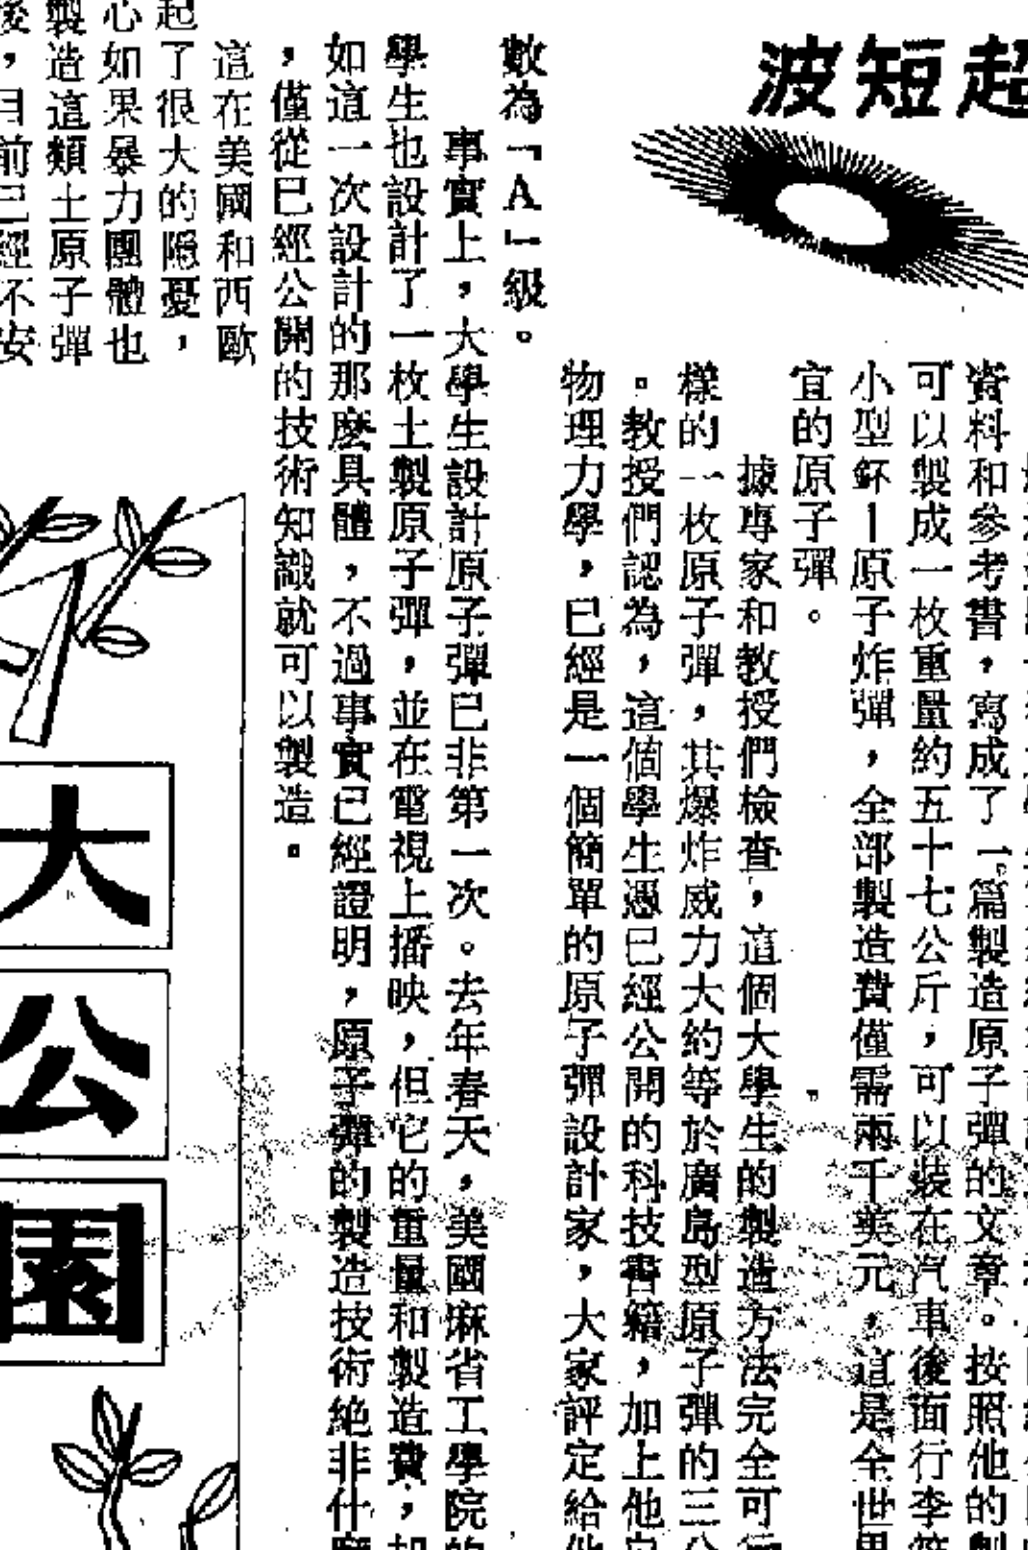 超短波
資料和參考書，寫成了一篇製造原子彈的文章。按照他的製
可以製成一枚重量約五十七公斤，可以裝在汽車後面行李
小型鈈－原子炸彈，全部製造費僅需兩千英元，這是全世界
宜的原子彈。
據專家和教授們檢查，這個大學生的製造方法完全可行
樣的一枚原子彈，其爆炸威力大約等於廣島型原子彈的三分
。教授們認為，這個學生憑已經公開的科技書籍，加上他
物理力學，已經是一個簡單的原子彈設計家，大家評定給他
數為「A」級。
事實上，大學生設計原子彈已非第一次。去年春天，美國麻省工學院的
學生也設計了一枚土製原子彈，並在電視上播映，但它的重量和製造費，
如這一次設計的那麼具體，不過事實已經證明，原子彈的製造技術絶非什麼
，僅從已經公開的技術知識就可以製造。
這在美國和西歐
起了很大的隱憂，
心如果暴力團體也
製造這類土原子彈
後，目前已經不安
大公園